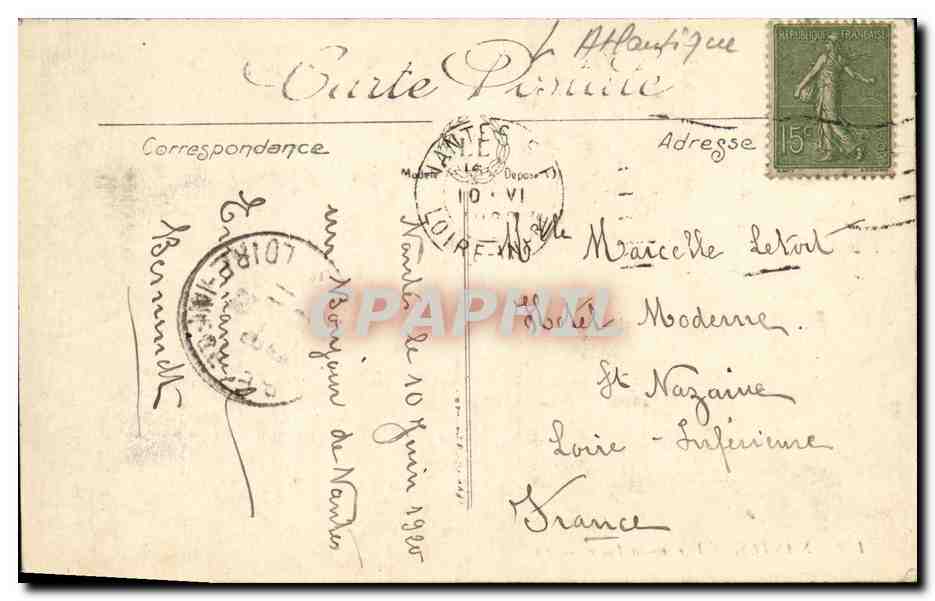 Atlantique
Carte Postale
RÉPUBLIQUE FRANÇAISE
15c
Correspondance
Adresse
NANTES
Modèle Déposé
10 VI
LOIRE-INF
Nantes le 10 Juin 1920
un Bonjour de Nantes
Emmanuel
Bernundt
LOIRE-INF
Mlle Marcelle
Hotel Moderne.
St Nazaire
Loire - Inférieure
France
CPAPHIL